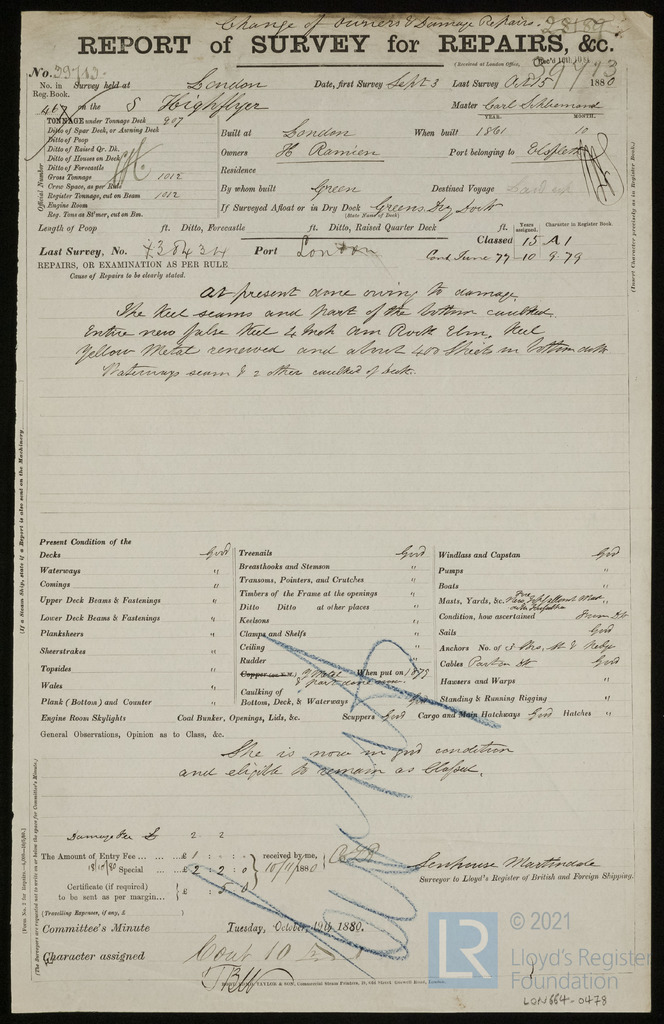 Change of owners & Damage Repairs.
REPORT of SURVEY for REPAIRS, &c.
(Received at London Office,
No. 39713
No. in Reg. Book.
Survey held at London Date, first Survey Sept 3 Last Survey Oct 5 1880
467 on the S Highflyer Master Carl
TONNAGE under Tonnage Deck 907
Ditto of Spar Deck, or Awning Deck
Ditto of Poop
Ditto of Raised Qr. Dk.
Ditto of Houses on Deck
Ditto of Forecastle
Gross Tonnage 1012
Crew Space, as per Rule
Register Tonnage, cut on Beam 1012
Engine Room
Reg. Tons as St'mer, cut on Bm.
Official Number
Built at London When built YEAR. 1861 MONTH. 10
Owners H Ramien Port belonging to Elsfleth
Residence
By whom built Green Destined Voyage Laid up
If Surveyed Afloat or in Dry Dock Greens Dry Dock
(State Name of Dock)
Length of Poop ft. Ditto, Forecastle ft. Ditto, Raised Quarter Deck ft.
Years assigned. Character in Register Book.
Last Survey, No. Port London Classed 15 A 1
Cont June 77 - 10 9.79
REPAIRS, OR EXAMINATION AS PER RULE
Cause of Repairs to be clearly stated.
(Insert Character precisely as in Register Book.)
At present done owing to damage.
The Keel seams and part of the bottom caulked.
Entire new false Keel 4 Inch Am Rock Elm. Keel
Yellow Metal renewed and about 400 Sheets in bottom ditto
Waterways seam & 2 other caulked of deck.
(If a Steam Ship, state if a Report is also sent on the Machinery.
Present Condition of the
Decks Good
Waterways "
Comings "
Upper Deck Beams & Fastenings "
Lower Deck Beams & Fastenings "
Planksheers "
Sheerstrakes "
Topsides "
Wales "
Plank (Bottom) and Counter "
Engine Room Skylights
Treenails Good
Breasthooks and Stemson "
Transoms, Pointers, and Crutches "
Timbers of the Frame at the openings "
Ditto Ditto at other places "
Keelsons "
Clamps and Shelfs "
Ceiling "
Rudder "
Copper (or Y.M.) Y Metal When put on 1879
& part done now
Caulking of Bottom, Deck, & Waterways Good
Coal Bunker, Openings, Lids, &c. Scuppers Good Cargo and Main Hatchways Good Hatches "
Windlass and Capstan Good
Pumps "
Boats "
Masts, Yards, &c.
Condition, how ascertained From Dk
Sails Good
Anchors No. of 3 Brs, St & Kedge
Cables Part on Dk Good
Hawsers and Warps "
Standing & Running Rigging "
General Observations, Opinion as to Class, &c.
She is now in good condition
and eligible to remain as Classed.
Damage Fee £ 2 . 2
The Amount of Entry Fee £ 1 : :
18/10/80 Special £ 2 : 2 : 0
received by me, 10/11/1880
Certificate (if required) to be sent as per margin £ : 5 : 0
(Travelling Expenses, if any, £
Senhouse Martindale
Surveyor to Lloyd's Register of British and Foreign Shipping.
Committee's Minute Tuesday, October 19th 1880.
Character assigned Cont 10
(The Surveyors are requested not to write on or below the space for Committee's Minute.)
TAYLOR & SON, Commercial Steam Printers,
© 2021
LR Lloyd's Register Foundation
LON664-0478